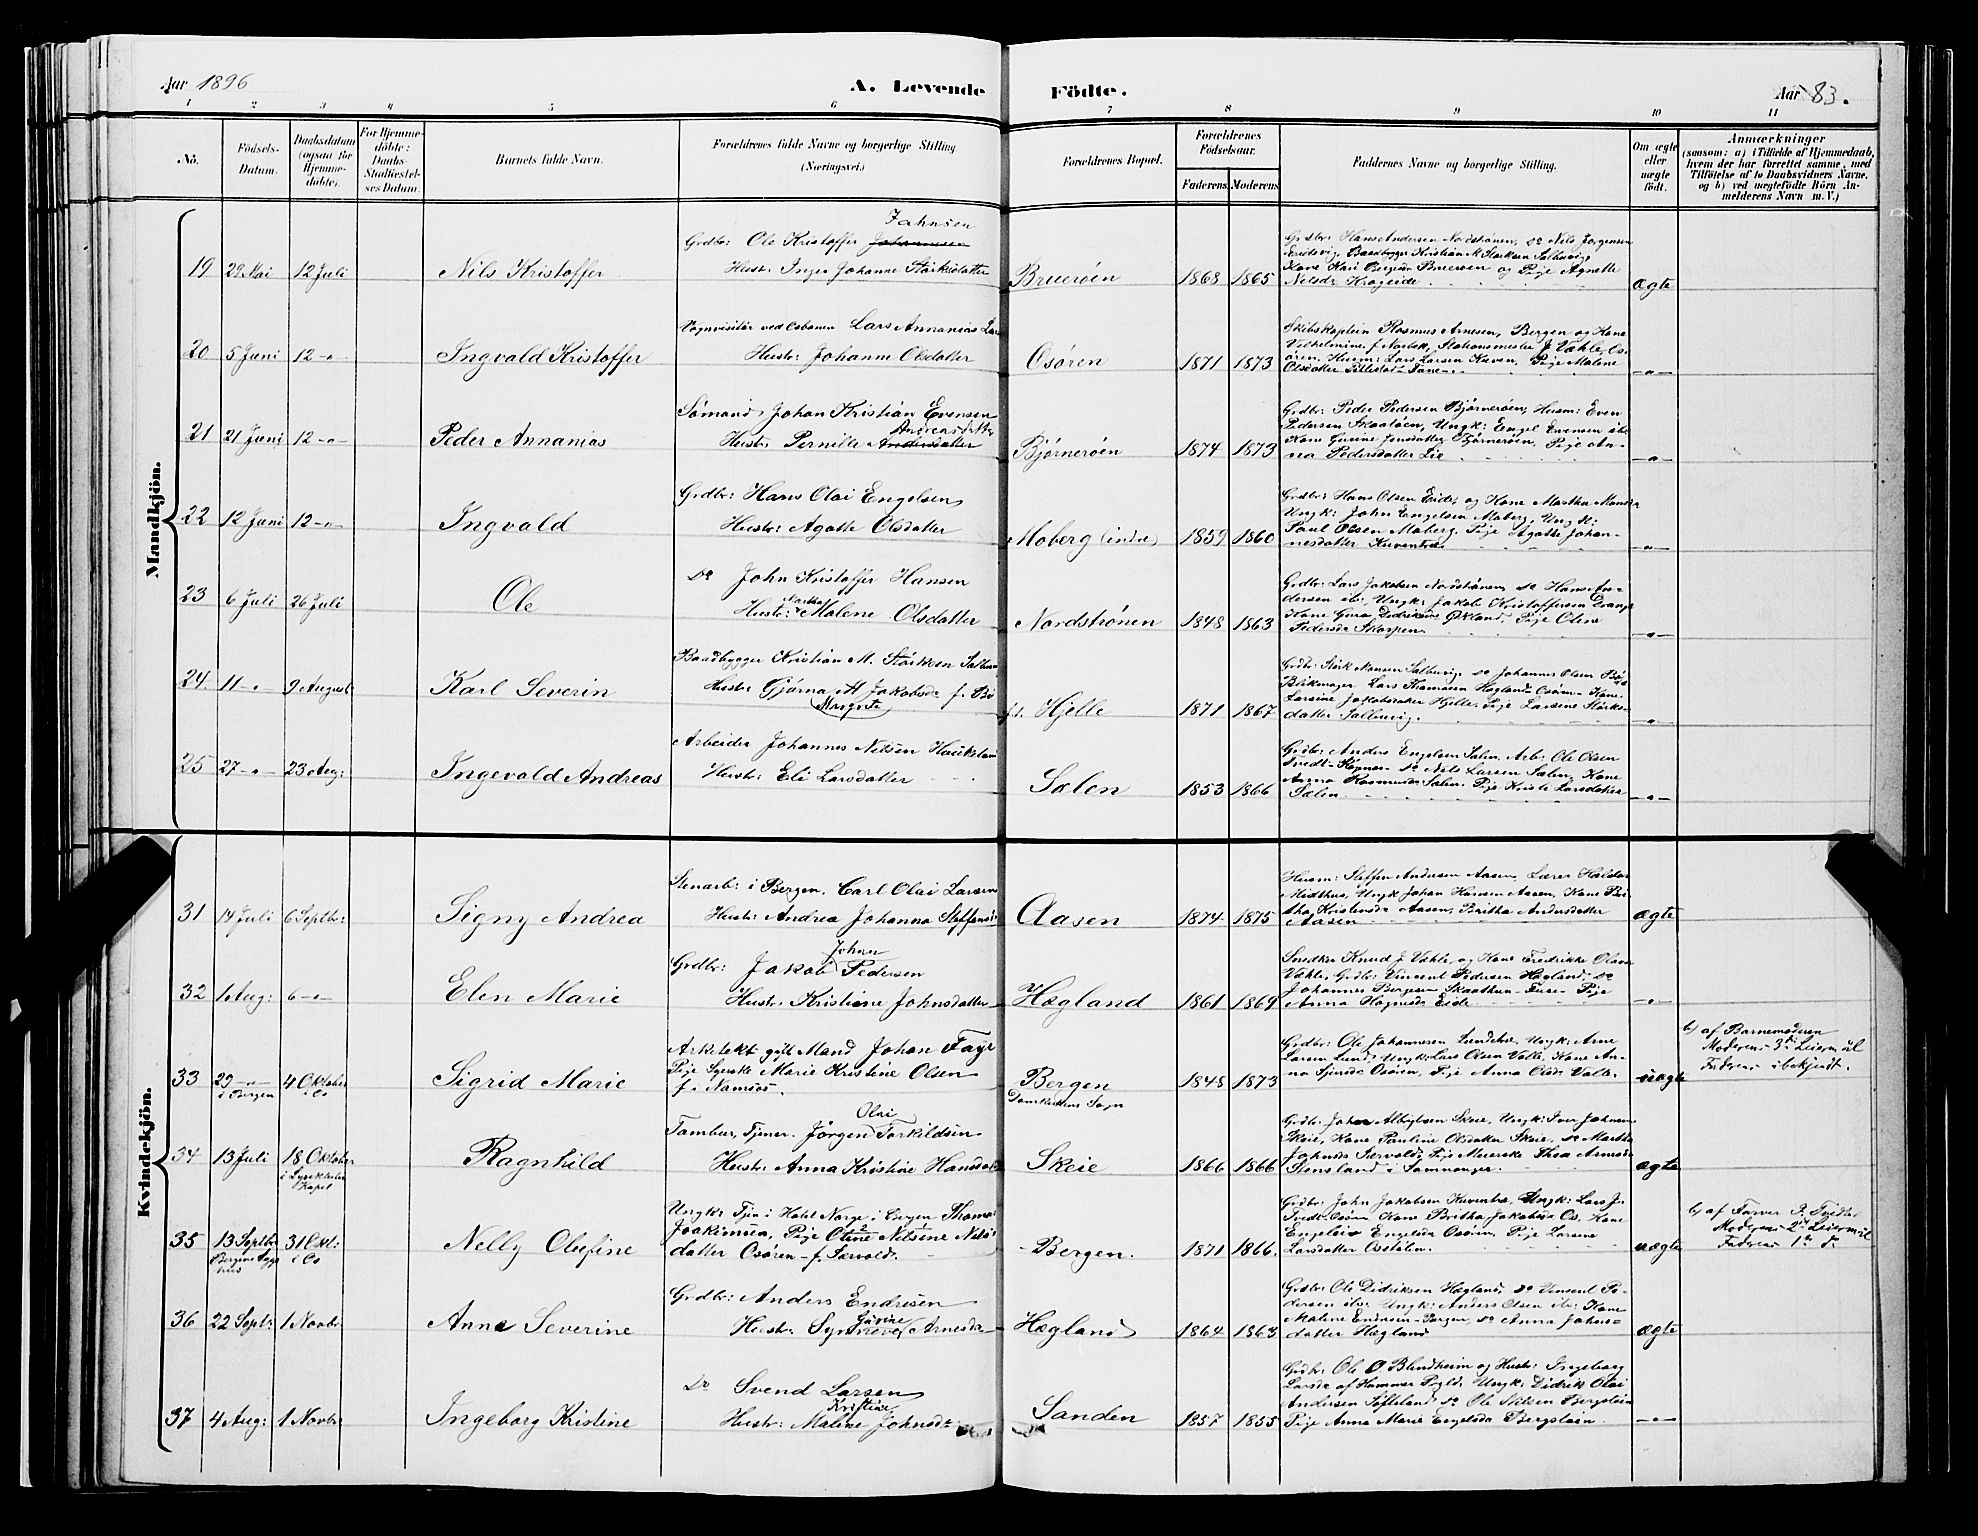 Aar 1896
A. Levende Födte.
Aar 83.
1 2 3 4 5 6 7 8 9 10 11
No.
Födsels-Datum.
Daabsdatum (ogsaa for Hjemmedöbte).
For Hjemmedöbte: Daabs-Stadfæstelses Datum.
Barnets fulde Navn.
Forældrenes fulde Navne og borgerlige Stilling (Næringsvei.)
Forældrenes Bopæl.
Forældrenes Födselsaar.
Faderens. Moderens.
Faddernes Navne og borgerlige Stilling.
Om ægte eller uægte födt.
Anmærkninger
(saasom: a) i Tilfælde af Hjemmedaab, hvem der har forrettet samme, med Tilföielse af to Daabsvidners Navne, og b) ved uægtefödte Börn Anmelderens Navn m. V.)
Mandkjön.
19 29 Mai 12 Juli Nils Kristoffer
Grdbr: Ole Kristoffer Johannesen Jahnsen
Hustr: Inger Johanne Størksdatter
Bruerøen 1868 1865
Grdbr: Hans Andersen Nordstrønen, do Nils Jørgensen
Baadbygger Kristian M Størksen Salbuvig,
Kone Kari Bruerøen og Pige Agnethe
Nilsdr Krogeide
ægte
20 5 Juni 12 -"- Ingvald Kristoffer
Vognvisitør ved Osbanen Lars Annanias
Hustr: Johanne Olsdatter
Osøren 1871 1873
Skibskaptein Rasmus Arnesen, Bergen og Kone
Vilhelmine f. Norbek, Stationsmester J Vahle, Os-
øren, Husm: Lars Larsen Kuven, Pige Malene
Olsdatter Fane
-"-
21 21 Juni 12 -"- Peder Annanias
Sømand, Johan Kristian Evensen
Hustr: Pernille Andersdatter Andreasdatter
Bjørnerøen 1874 1873
Grdbr: Peder Pedersen Bjørnerøen, Husm: Even
Pedersen Skaatøen, Ungk: Engel Evensen ibd
Kone Gurine Jensdatter Bjørnerøen, Pige An-
na Pedersdatter Lie
-"-
22 12 Juni 12 -"- Ingvald
Grdbr: Hans Olai Engelsen
Hustr: Agathe Olsdatter
Moberg (indre) 1859 1860
Grdbr: Hans Olsen Eide, og Kone Martha Monsdr
Ungk: John Engelsen Moberg, Ungk:
Paul Olsen Moberg, Pige Agathe Johan-
nesdatter Kuventræ
-"-
23 6 Juli 26 Juli Ole
Do John Kristoffer Hansen
Hustr: Martha Malene Olsdatter
Nordstrønen 1848 1863
Grdbr: Lars Jakobsen Nordstrønen, do Hans An-
dersen ibd, Ungk: Jakob Kristoffersen Drange
Kone Guro Didriksdr Økland, Pige Oline
Pedersdr Skorpen
-"-
24. 11 -"- 9 August Karl Severin
Baadbygger Kristian M. Størksen
Hustr: Gjørna M Jakobsdr f. Bø
Margrete
Hjelle 1871 1867
Grdbr: Størk Monsen Salbuvig, do Johannes Olsen Bø
Blikmager Lars Thomassen Hægland Osøren Kone
Larsine Jakobsdatter Hjelle, Pige Larsine Størks-
datter Salbuvig.
-"-
25 27 -"- 23 Aug: Ingevald Andreas
Arbeider Johannes Nilsen Haukeland
Hustr: Eli Larsdatter
Sælen 1853 1866
Grdbr: Anders Engelsen Sælen, Arb: Ole Olsen
do Nils Larsen Sælen, Kone
Anna Rasmusdr Sælen, Pige Kirsti Larsdatter
Sælen
-"-
Kvindekjön.
31 14 Juli 6 Septbr: Signy Andrea
Stenarb: i Bergen, Carl Olai Larsen
Hustr: Andrea Johanna Steffensdr
Aasen 1874 1875
Husm: Steffen Andersen Aasen, Lærer Haldor
Midthus, Ungk Johan Hansen Aasen, Kone Bri-
tha Kristensdr Aasen, Britha Andersdatter
Aasen
ægte
32 1 Aug: 6 -"- Elen Marie
Grdbr: Jakob Johan Pedersen
Hustr: Kristiane Johnsdatter
Hægland 1861 1869
Snedker Knud J Vahle, og Kone Fredrikke Olava
Vahle, Grdbr: Vincent Pedersen Hægland, do
Johannes Børgesen Skaathun Fuse Pige
Anna Magnusdr Eide
-"-
33 29 -"- i Bergen 4 Oktober i Os Sigrid Marie
Arkitekt gift Mand Johan Faye
Pige Syerske Marie Kristine Olsen
f. Namsos.
Bergen
Domkirkens Sogn
1848 1873
Grdbr: Ole Johannesen Lundetræ, Ungk: Arne
Larsen Lund, Ungk: Lars Olsen Valle, Kone An-
na Sjursdr Osøren, Pige Anna Olsdr Valle.
uægte
b) af Barnemoderen
Moderens 3die Leiermaal
Faderens ubekjendt.
34 13 Juli 18 Oktober i Lysekloster Kapel Ragnhild
Tambur, Tjener. Jørgen Olai Torkildsen
Hustr: Anna Kristine Hansdatter
Skeie 1866 1866
Grdbr: Johan Albrigtsen Skeie, Ungk: Iver Johnsen
Skeie, Kone Pauline Olsdatter Skeie, do Martha
Johnsdr Særvold, Pige Meierske Thea Arnesdr
Stensland i Samnanger.
ægte
35 13 Septbr Bergens 31 Okt: i Os Nelly Olufine
Ungk: Tjen: i Hotel Norge i Bergen Thomas
Joakimsen, Pige Oline Nelsine Nils-
datter Osøren f. Særvold.
Bergen. 1871 1866.
Grdbr: John Jakobsen Kuventræ, Ungk: Lars J.
Tvedt Osøren Kone Britha Jakobsdr Os, Kone
Engeline Engelsdr Osøren, Pige Larsine
Larsdatter Osstølen.
uægte
b) af Farver P. Tvedter
Moderens 2det Leiermaal
Faderens 1ste do
36 22 Sept: 1 Novbr Anne Severine
Grdbr: Anders Endresen
Hustr: Synneve Gurine Arnesdr
Hægland 1864 1863
Grdbr: Ole Didriksen Hægland, do Vincent Pe-
dersen ibd: Ungk: Anders Olsen ibd: Kone
Malene Endresen Bergen, do Anna Johns-
datter Hægland
ægte
37 4 Aug: 1 Novbr Ingeborg Kristine
Do Svend Larsen
Hustr: Malene Kristine Johnsdr
Sanden 1857 1855
Grdbr: Ole O. Blendheim og Hustr: Ingeborg
Larsdr af Hammer Pgld: Ungk: Didrik Olai
Andersen Søfteland do Ole Nilsen Bergstøin
Pige Anna Marie Engelsdr Bergstøin
-"-